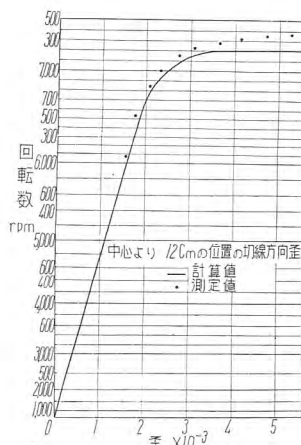 500
300
7,000
700
500
300
6,000
600
300
5,000
600
300
4,000
600
3,000
600
2,000
500
1,000
回転数
rpm
中心より 12Cmの位置の切線方向歪
計算値
測定値
0 1 2 3 4 5
歪 ×10⁻³